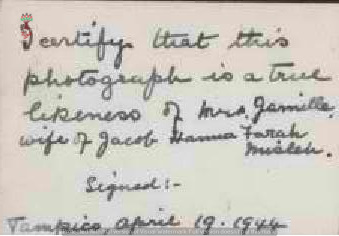 I certify that this
photograph is a true
likeness of Mrs. Jamille,
wife of Jacob Hanna Farah
Musleh.
Signed:-
Tampico, April 19. 1944